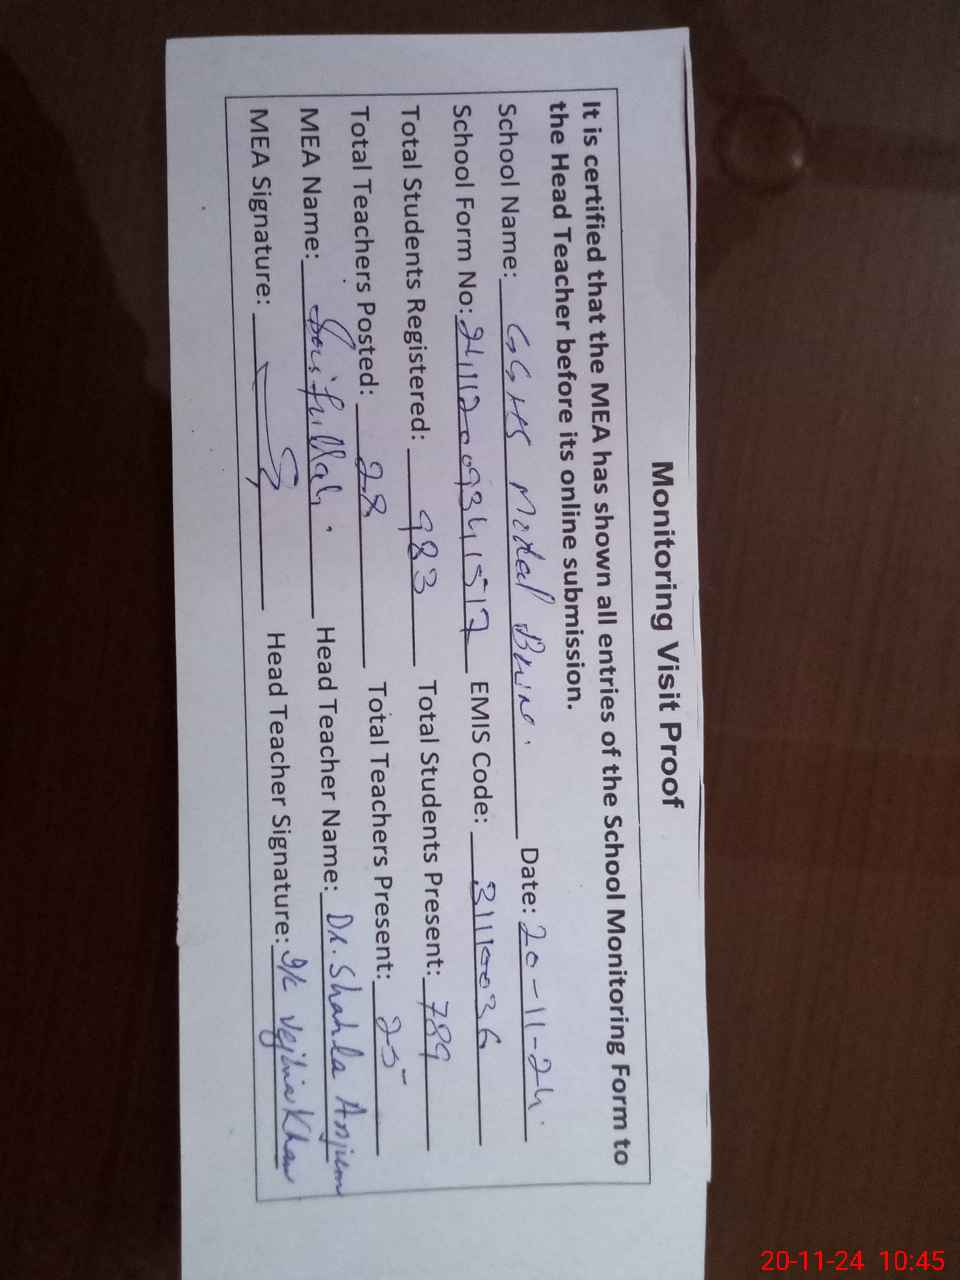 Monitoring Visit Proof
It is certified that the MEA has shown all entries of the School Monitoring Form to
the Head Teacher before its online submission.
School Name: GGHS Model Date: 20-11-24.
School Form No: EMIS Code: 31110036
Total Students Registered: 983 Total Students Present: 789
Total Teachers Posted: 28 Total Teachers Present: 25
MEA Name: Head Teacher Name: Dr. Shahla Anjum
MEA Signature: Head Teacher Signature: I/c Khan
20-11-24 10:45